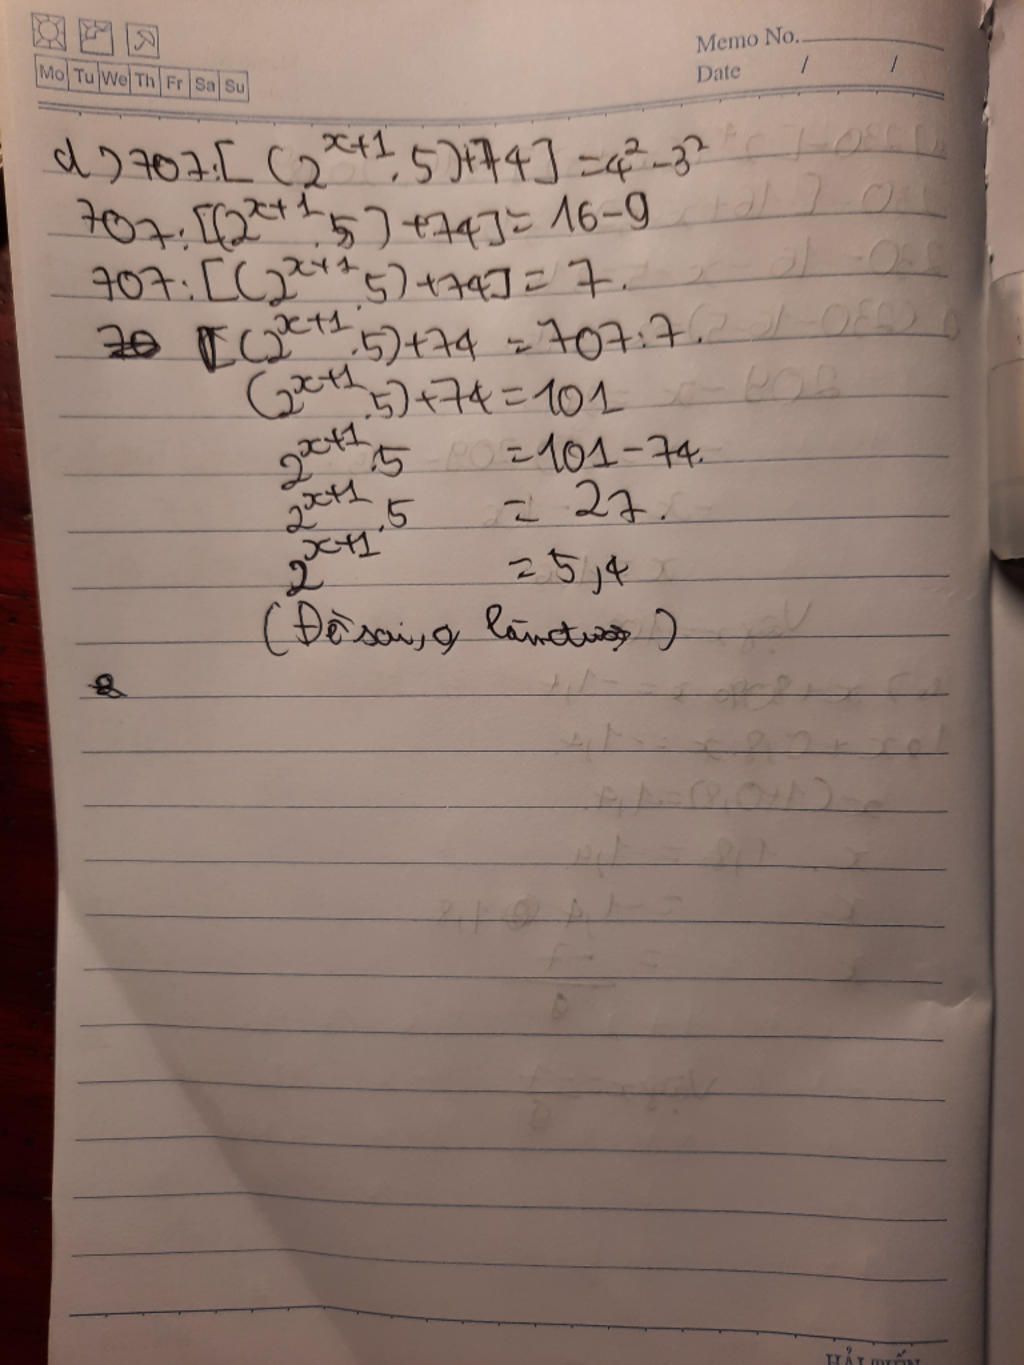 Memo No.
Mo Tu We Th Fr Sa Su
Date / /
d) 707:[(2^{x+1}.5)+74]=4²-3²
707:[(2^{x+1}.5)+74]=16-9
707:[(2^{x+1}.5)+74]=7.
[(2^{x+1}.5)+74=707:7.
(2^{x+1}.5)+74=101
2^{x+1}.5=101-74.
2^{x+1}.5=27.
2^{x+1}=5,4
(Đề sai,
HẢI TIẾN